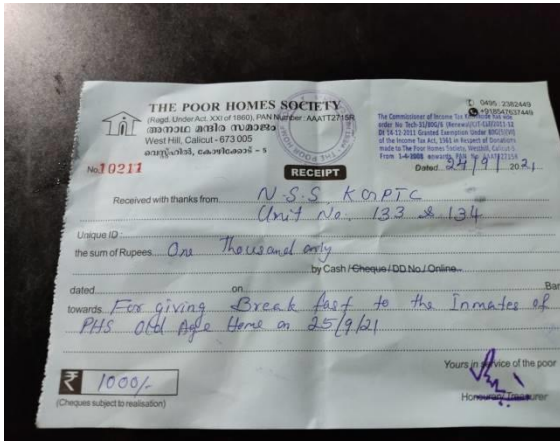 THE POOR HOMES SOCIETY
(Regd. Under Act. XXI of 1860), PAN Number : AAATT2715R
അനാഥ മന്ദിര സമാജം
West Hill, Calicut - 673 005
വെസ്റ്റ്ഹിൽ, കോഴിക്കോട് - 5
0495 : 2382449
+918547637449
The Commissioner of Income Tax
Dt 14-12-2011 Granted Exemption Under 80G(5)(VI)
of the Income Tax Act, 1961 in Respect of Donations
made to The Poor Homes Society, Westhill, Calicut-5
No. 10211
RECEIPT
Dated 24/9/ 2021
Received with thanks from N.S.S. KGPTC
Unit No. 133 & 134
Unique ID :
the sum of Rupees One Thousand only
by Cash / Cheque / DD No./ Online
dated on Ban
towards For giving Break fast to the Inmates of
PHS Old Age Home on 25/9/21
Yours in service of the poor
₹ 1000/-
(Cheques subject to realisation)
Honourary Treasurer